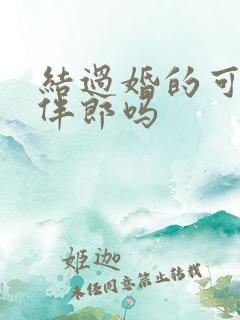 結過婚的可
伴郎吗
姬迦
未任同意禁止转载